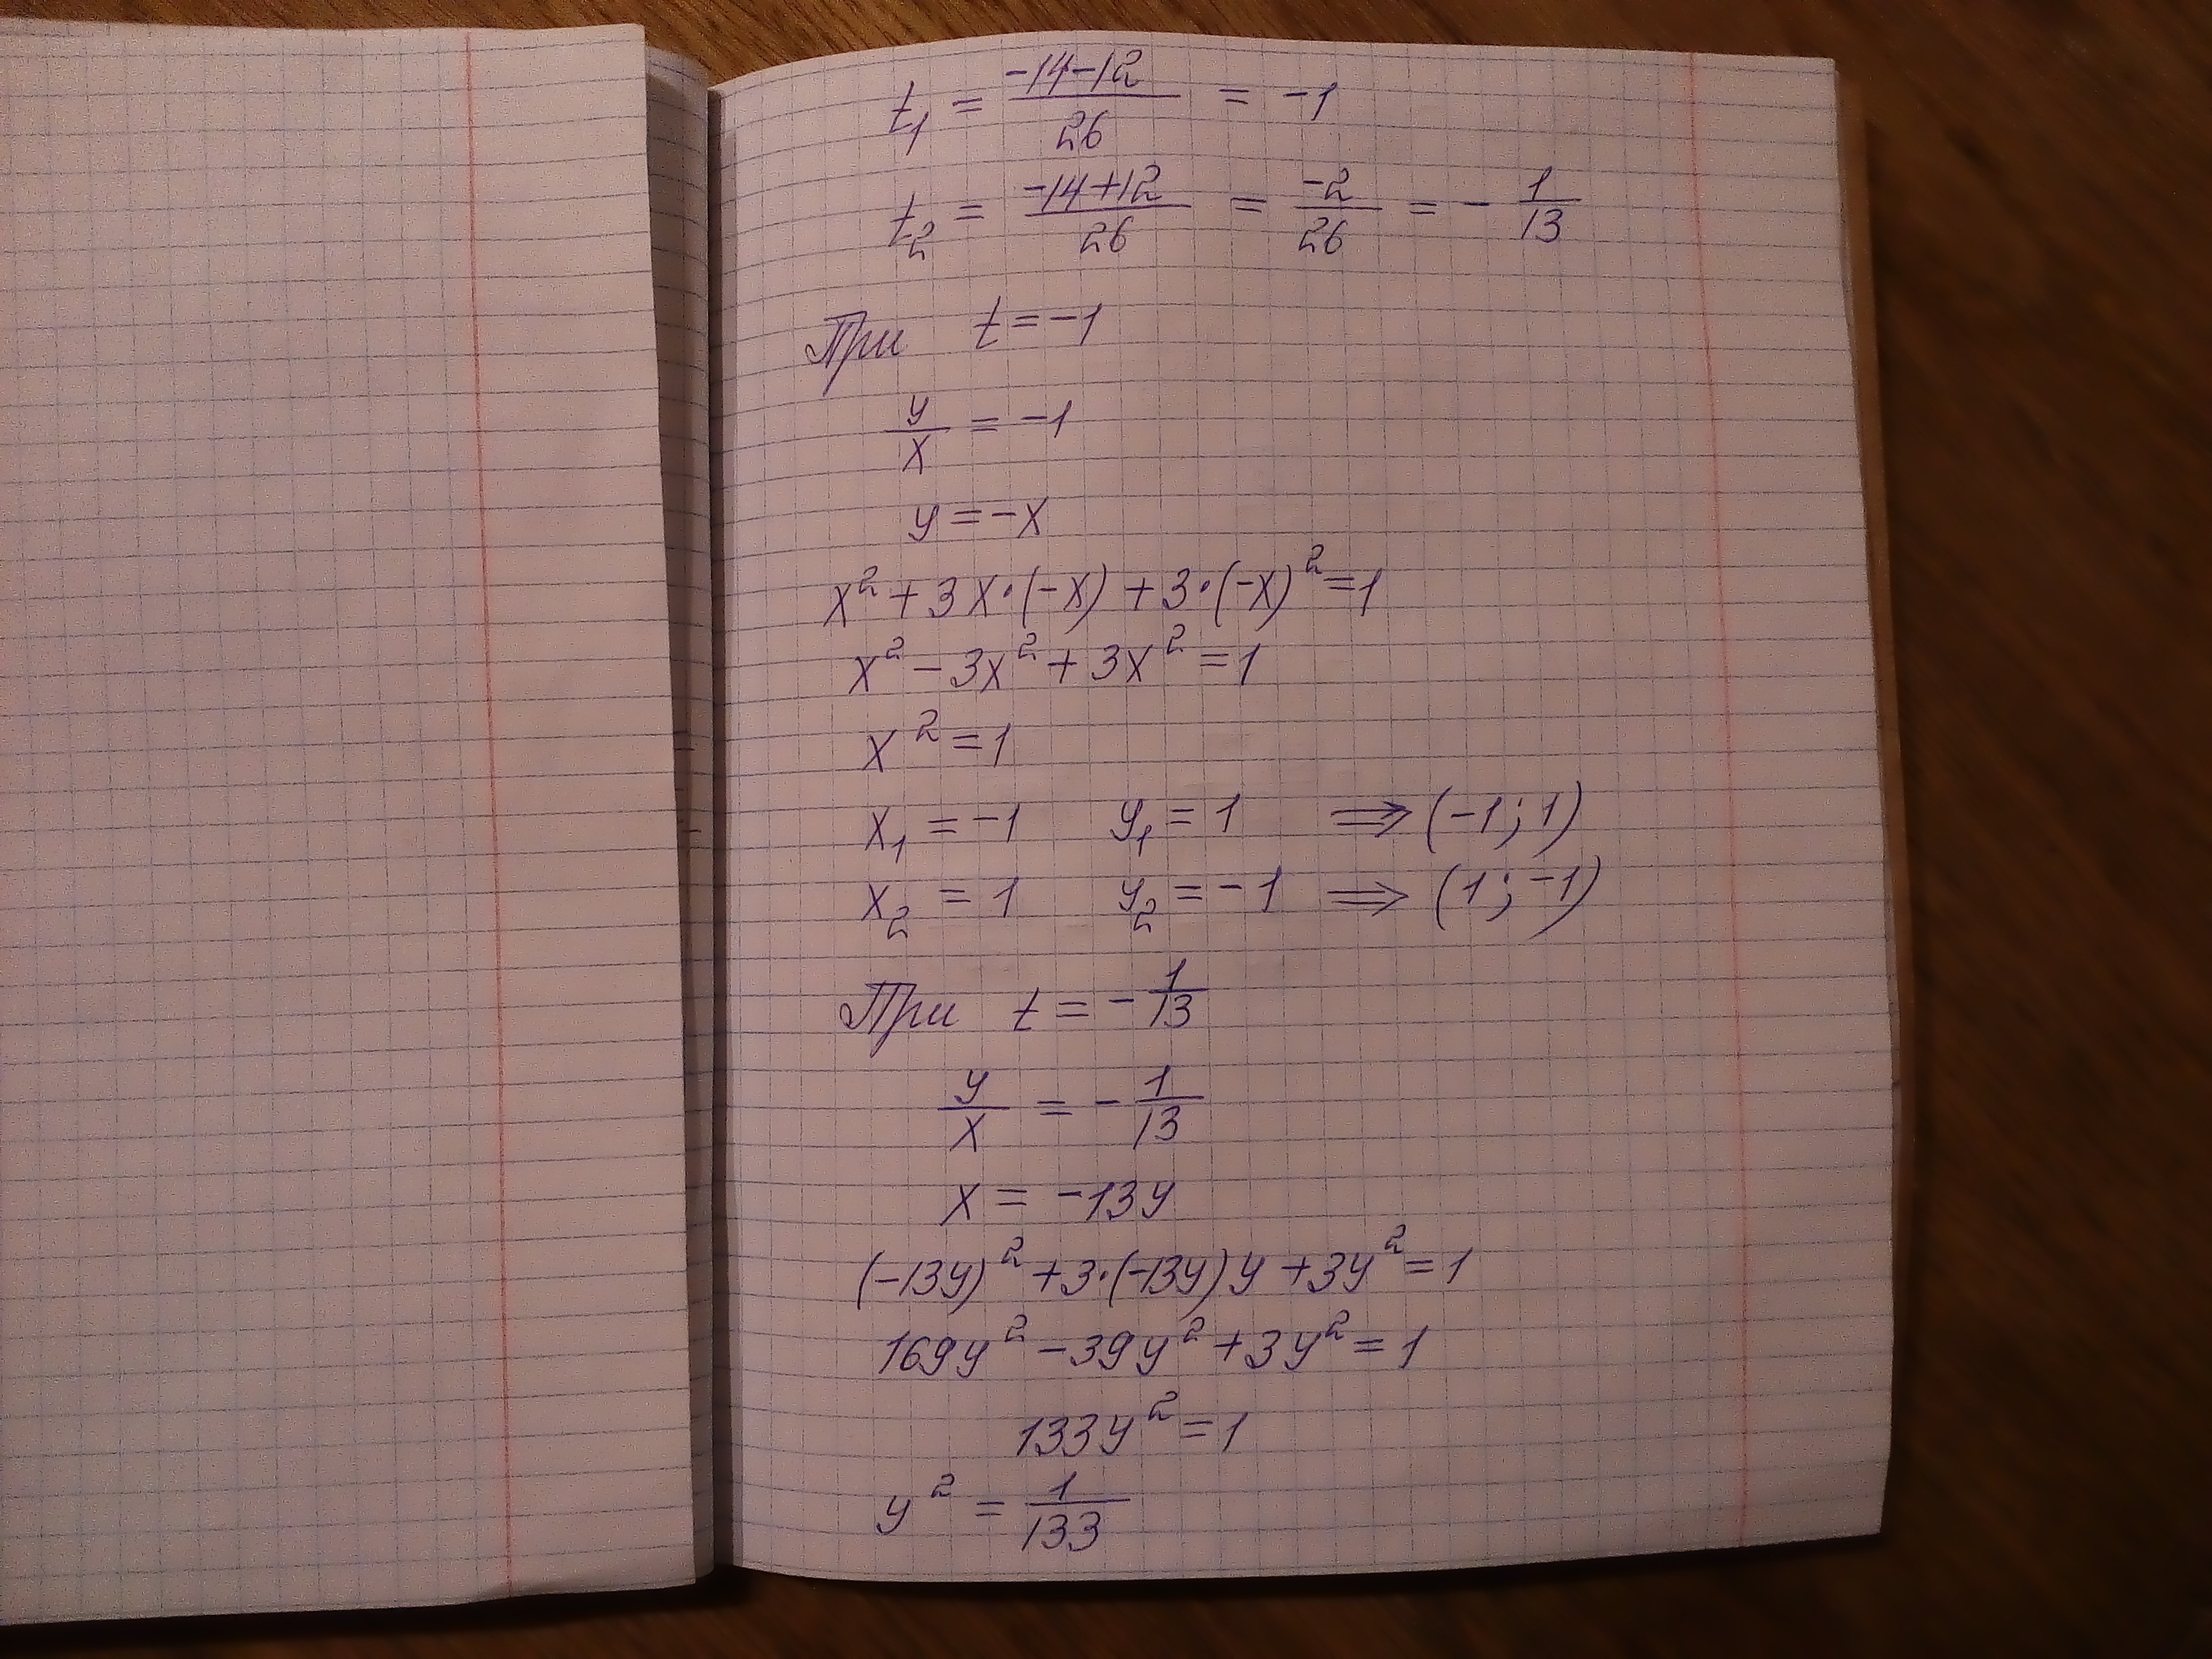 t₁ = (-14-12)/26 = -1
t₂ = (-14+12)/26 = -2/26 = -1/13
При t = -1
y/x = -1
y = -x
x² + 3x·(-x) + 3·(-x)² = 1
x² - 3x² + 3x² = 1
x² = 1
x₁ = -1 y₁ = 1 ⟹ (-1; 1)
x₂ = 1 y₂ = -1 ⟹ (1; -1)
При t = -1/13
y/x = -1/13
x = -13y
(-13y)² + 3·(-13y)y + 3y² = 1
169y² - 39y² + 3y² = 1
133y² = 1
y² = 1/133